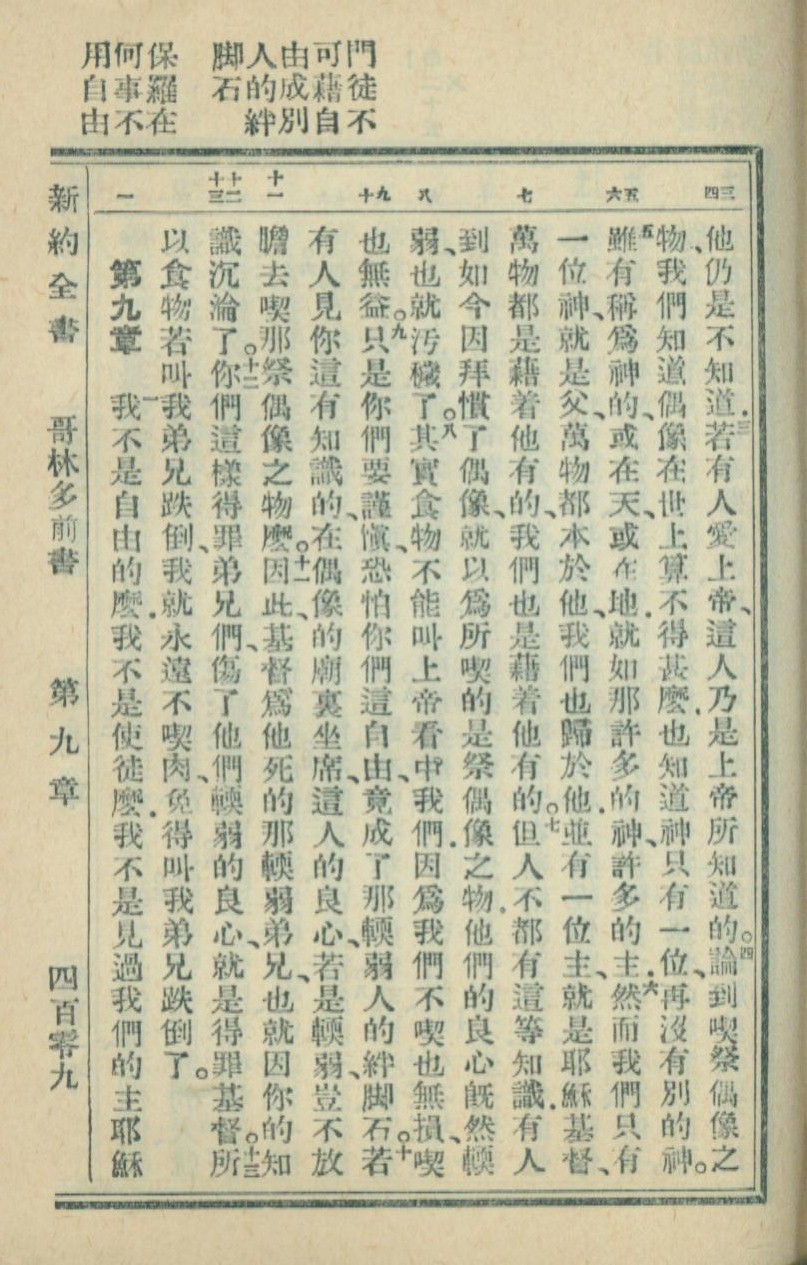 門徒不
可藉自
由成別
人的絆
脚石
保羅在
何事不
用自由
三四
五六
七
八
九十
十一
十二十三
一
他仍是不知道三若有人愛上帝、這人乃是上帝所知道的。四論到喫祭偶像之
物、我們知道偶像在世上算不得甚麽.也知道神只有一位、再沒有別的神。
五雖有稱爲神的、或在天、或在地.就如那許多的神、許多的主.六然而我們只有
一位神、就是父、萬物都本於他、我們也歸於他.並有一位主、就是耶穌基督、
萬物都是藉着他有的、我們也是藉着他有的。七但人不都有這等知識.有人
到如今因拜慣了偶像、就以爲所喫的是祭偶像之物.他們的良心旣然輭
弱、也就汚穢了。八其實食物不能叫上帝看中我們.因爲我們不喫也無損、喫
也無益。九只是你們要謹愼、恐怕你們這自由、竟成了那輭弱人的絆脚石。十若
有人見你這有知識的、在偶像的廟裏坐席、這人的良心、若是輭弱、豈不放
膽去喫那祭偶像之物麽。十一因此、基督爲他死的那輭弱弟兄、也就因你的知
識沉淪了。十二你們這樣得罪弟兄們、傷了他們輭弱的良心、就是得罪基督。十三所
以食物若叫我弟兄跌倒、我就永遠不喫肉、免得叫我弟兄跌倒了。
第九章 一我不是自由的麽.我不是使徒麽.我不是見過我們的主耶穌
新約全書 哥林多前書 第九章 四百零九